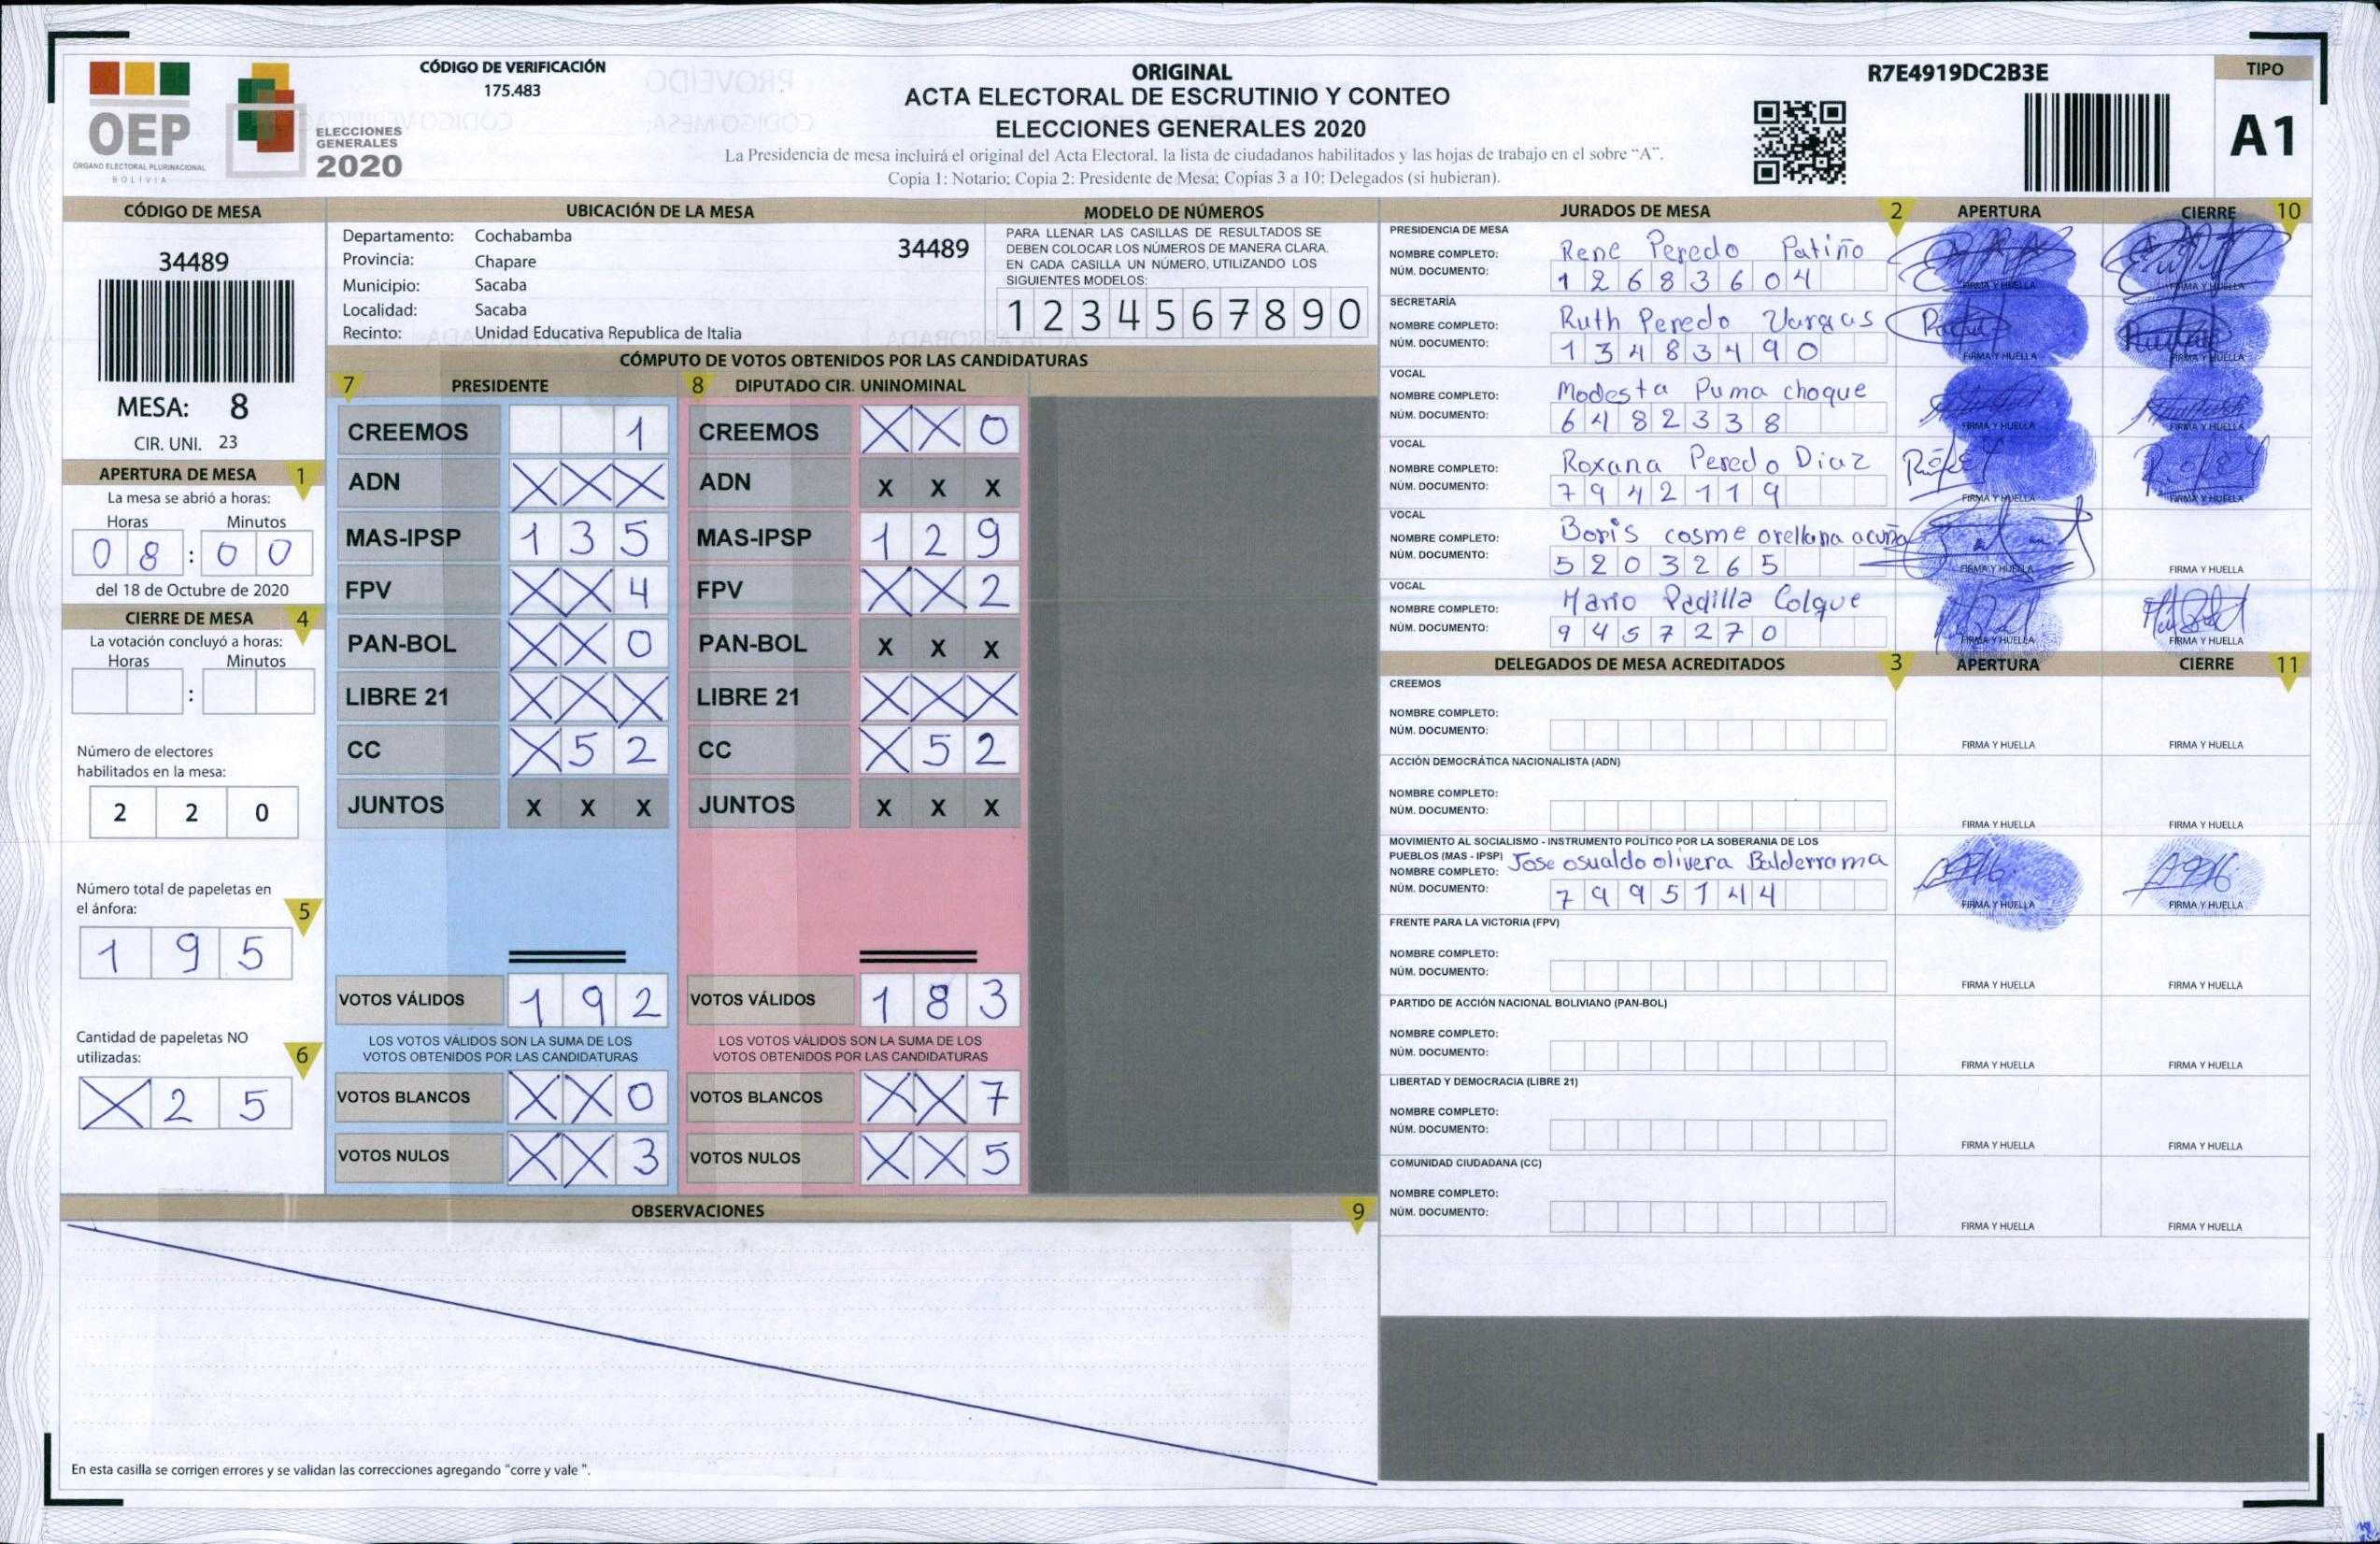 OEP
ÓRGANO ELECTORAL PLURINACIONAL
BOLIVIA
ELECCIONES
GENERALES
2020
CÓDIGO DE VERIFICACIÓN
175.483
ORIGINAL
ACTA ELECTORAL DE ESCRUTINIO Y CONTEO
ELECCIONES GENERALES 2020
La Presidencia de mesa incluirá el original del Acta Electoral, la lista de ciudadanos habilitados y las hojas de trabajo en el sobre "A".
Copia 1: Notario; Copia 2: Presidente de Mesa; Copias 3 a 10: Delegados (si hubieran).
R7E4919DC2B3E
TIPO
A1
CÓDIGO DE MESA
34489
MESA: 8
CIR. UNI. 23
APERTURA DE MESA 1
La mesa se abrió a horas:
Horas Minutos
0 8 : 0 0
del 18 de Octubre de 2020
CIERRE DE MESA 4
La votación concluyó a horas:
Horas Minutos
:
Número de electores
habilitados en la mesa:
2 2 0
Número total de papeletas en
el ánfora: 5
1 9 5
Cantidad de papeletas NO
utilizadas: 6
X 2 5
UBICACIÓN DE LA MESA
Departamento: Cochabamba 34489
Provincia: Chapare
Municipio: Sacaba
Localidad: Sacaba
Recinto: Unidad Educativa Republica de Italia
MODELO DE NÚMEROS
PARA LLENAR LAS CASILLAS DE RESULTADOS SE
DEBEN COLOCAR LOS NÚMEROS DE MANERA CLARA.
EN CADA CASILLA UN NÚMERO, UTILIZANDO LOS
SIGUIENTES MODELOS:
1 2 3 4 5 6 7 8 9 0
CÓMPUTO DE VOTOS OBTENIDOS POR LAS CANDIDATURAS
7 PRESIDENTE 8 DIPUTADO CIR. UNINOMINAL
CREEMOS 1 CREEMOS X X 0
ADN X X X ADN X X X
MAS-IPSP 1 3 5 MAS-IPSP 1 2 9
FPV X X 4 FPV X X 2
PAN-BOL X X 0 PAN-BOL X X X
LIBRE 21 X X X LIBRE 21 X X X
CC X 5 2 CC X 5 2
JUNTOS X X X JUNTOS X X X
VOTOS VÁLIDOS 1 9 2 VOTOS VÁLIDOS 1 8 3
LOS VOTOS VÁLIDOS SON LA SUMA DE LOS LOS VOTOS VÁLIDOS SON LA SUMA DE LOS
VOTOS OBTENIDOS POR LAS CANDIDATURAS VOTOS OBTENIDOS POR LAS CANDIDATURAS
VOTOS BLANCOS X X 0 VOTOS BLANCOS X X 7
VOTOS NULOS X X 3 VOTOS NULOS X X 5
OBSERVACIONES 9
En esta casilla se corrigen errores y se validan las correcciones agregando "corre y vale ".
JURADOS DE MESA 2 APERTURA CIERRE 10
PRESIDENCIA DE MESA
NOMBRE COMPLETO: Rene Peredo Patiño
NÚM. DOCUMENTO: 1 2 6 8 3 6 0 4 FIRMA Y HUELLA FIRMA Y HUELLA
SECRETARÍA
NOMBRE COMPLETO: Ruth Peredo Vargas
NÚM. DOCUMENTO: 1 3 4 8 3 4 9 0 FIRMA Y HUELLA FIRMA Y HUELLA
VOCAL
NOMBRE COMPLETO: Modesta Puma choque
NÚM. DOCUMENTO: 6 4 8 2 3 3 8 FIRMA Y HUELLA FIRMA Y HUELLA
VOCAL
NOMBRE COMPLETO: Roxana Peredo Diaz
NÚM. DOCUMENTO: 7 9 4 2 1 1 9 FIRMA Y HUELLA FIRMA Y HUELLA
VOCAL
NOMBRE COMPLETO: Boris cosme orellana acuña
NÚM. DOCUMENTO: 5 2 0 3 2 6 5 FIRMA Y HUELLA FIRMA Y HUELLA
VOCAL
NOMBRE COMPLETO: Mario Padilla Colque
NÚM. DOCUMENTO: 9 4 5 7 2 7 0 FIRMA Y HUELLA FIRMA Y HUELLA
DELEGADOS DE MESA ACREDITADOS 3 APERTURA CIERRE 11
CREEMOS
NOMBRE COMPLETO:
NÚM. DOCUMENTO: FIRMA Y HUELLA FIRMA Y HUELLA
ACCIÓN DEMOCRÁTICA NACIONALISTA (ADN)
NOMBRE COMPLETO:
NÚM. DOCUMENTO: FIRMA Y HUELLA FIRMA Y HUELLA
MOVIMIENTO AL SOCIALISMO - INSTRUMENTO POLÍTICO POR LA SOBERANIA DE LOS
PUEBLOS (MAS - IPSP)
NOMBRE COMPLETO: Jose osualdo olivera Balderrama
NÚM. DOCUMENTO: 7 9 9 5 1 4 4 FIRMA Y HUELLA FIRMA Y HUELLA
FRENTE PARA LA VICTORIA (FPV)
NOMBRE COMPLETO:
NÚM. DOCUMENTO: FIRMA Y HUELLA FIRMA Y HUELLA
PARTIDO DE ACCIÓN NACIONAL BOLIVIANO (PAN-BOL)
NOMBRE COMPLETO:
NÚM. DOCUMENTO: FIRMA Y HUELLA FIRMA Y HUELLA
LIBERTAD Y DEMOCRACIA (LIBRE 21)
NOMBRE COMPLETO:
NÚM. DOCUMENTO: FIRMA Y HUELLA FIRMA Y HUELLA
COMUNIDAD CIUDADANA (CC)
NOMBRE COMPLETO:
NÚM. DOCUMENTO: FIRMA Y HUELLA FIRMA Y HUELLA